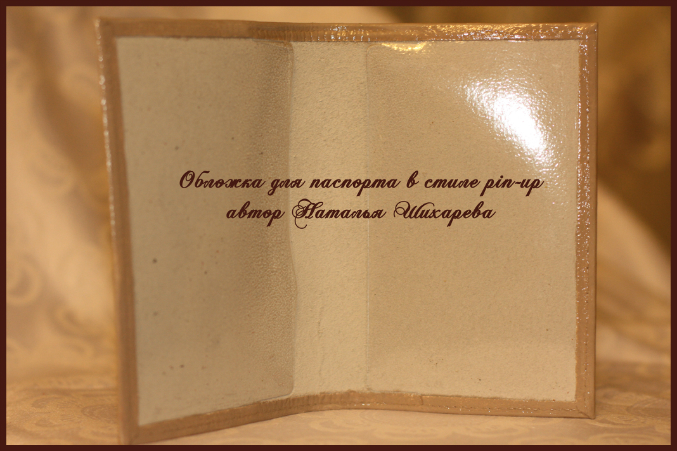 Обложка для паспорта в стиле pin-up
автор Наталья Шихарева